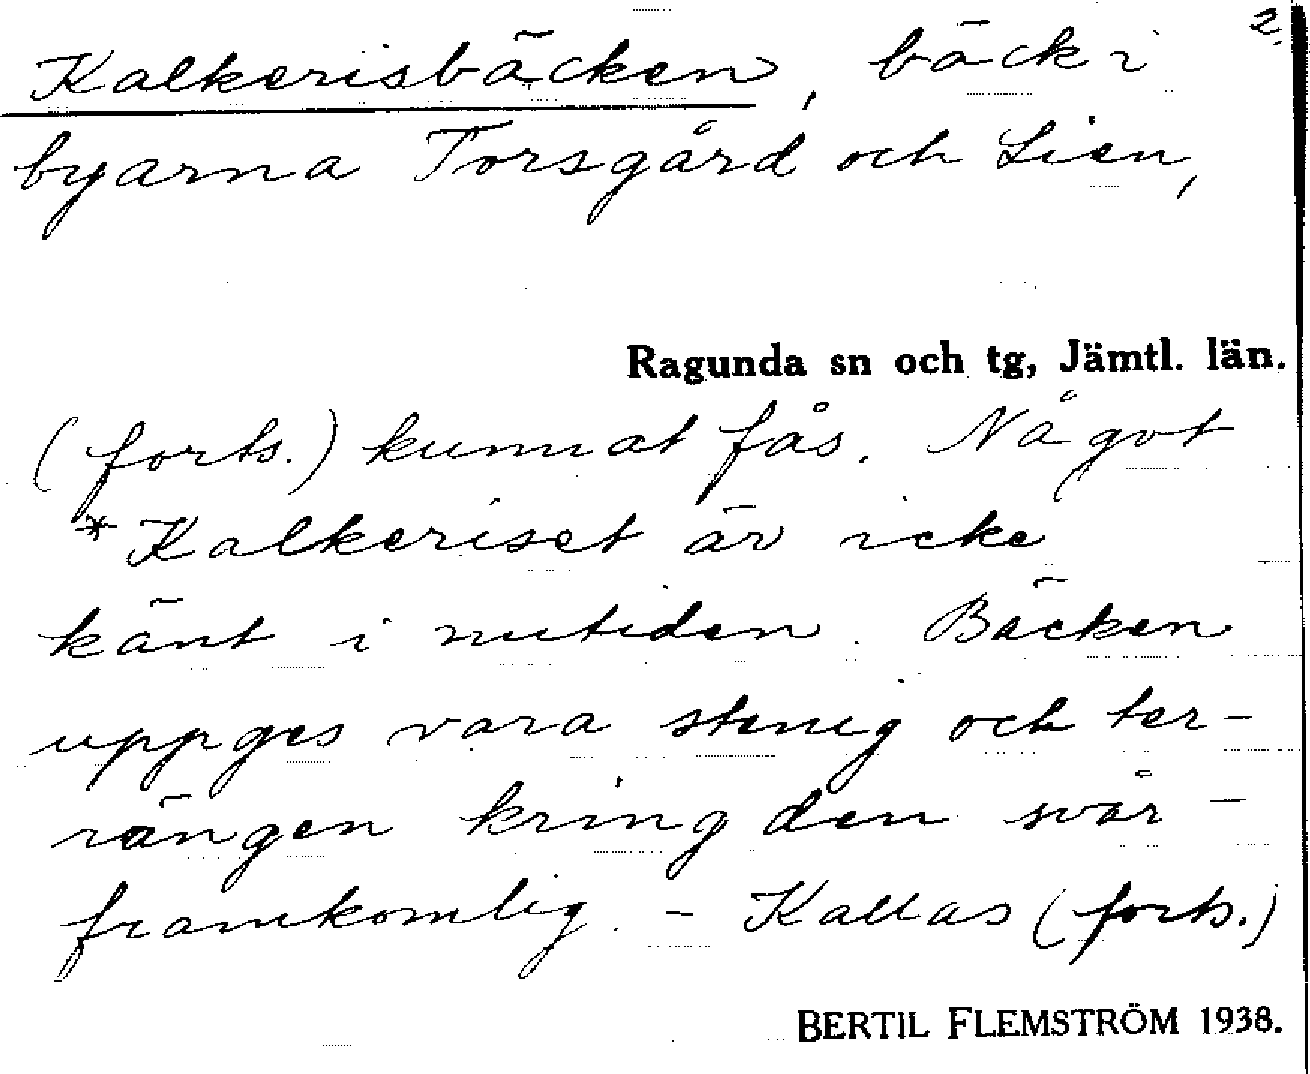 2.
Kalkerisbäcken, bäck i
byarna Torsgård och Lien,
Ragunda sn och tg, Jämtl. län.
(forts.) kunnat fås. Något
*Kalkeriset är icke
känt i nutiden. Bäcken
uppges vara stenig och ter-
rängen kring den svår-
framkomlig. - Kallas (forts.)
BERTIL FLEMSTRÖM 1938.